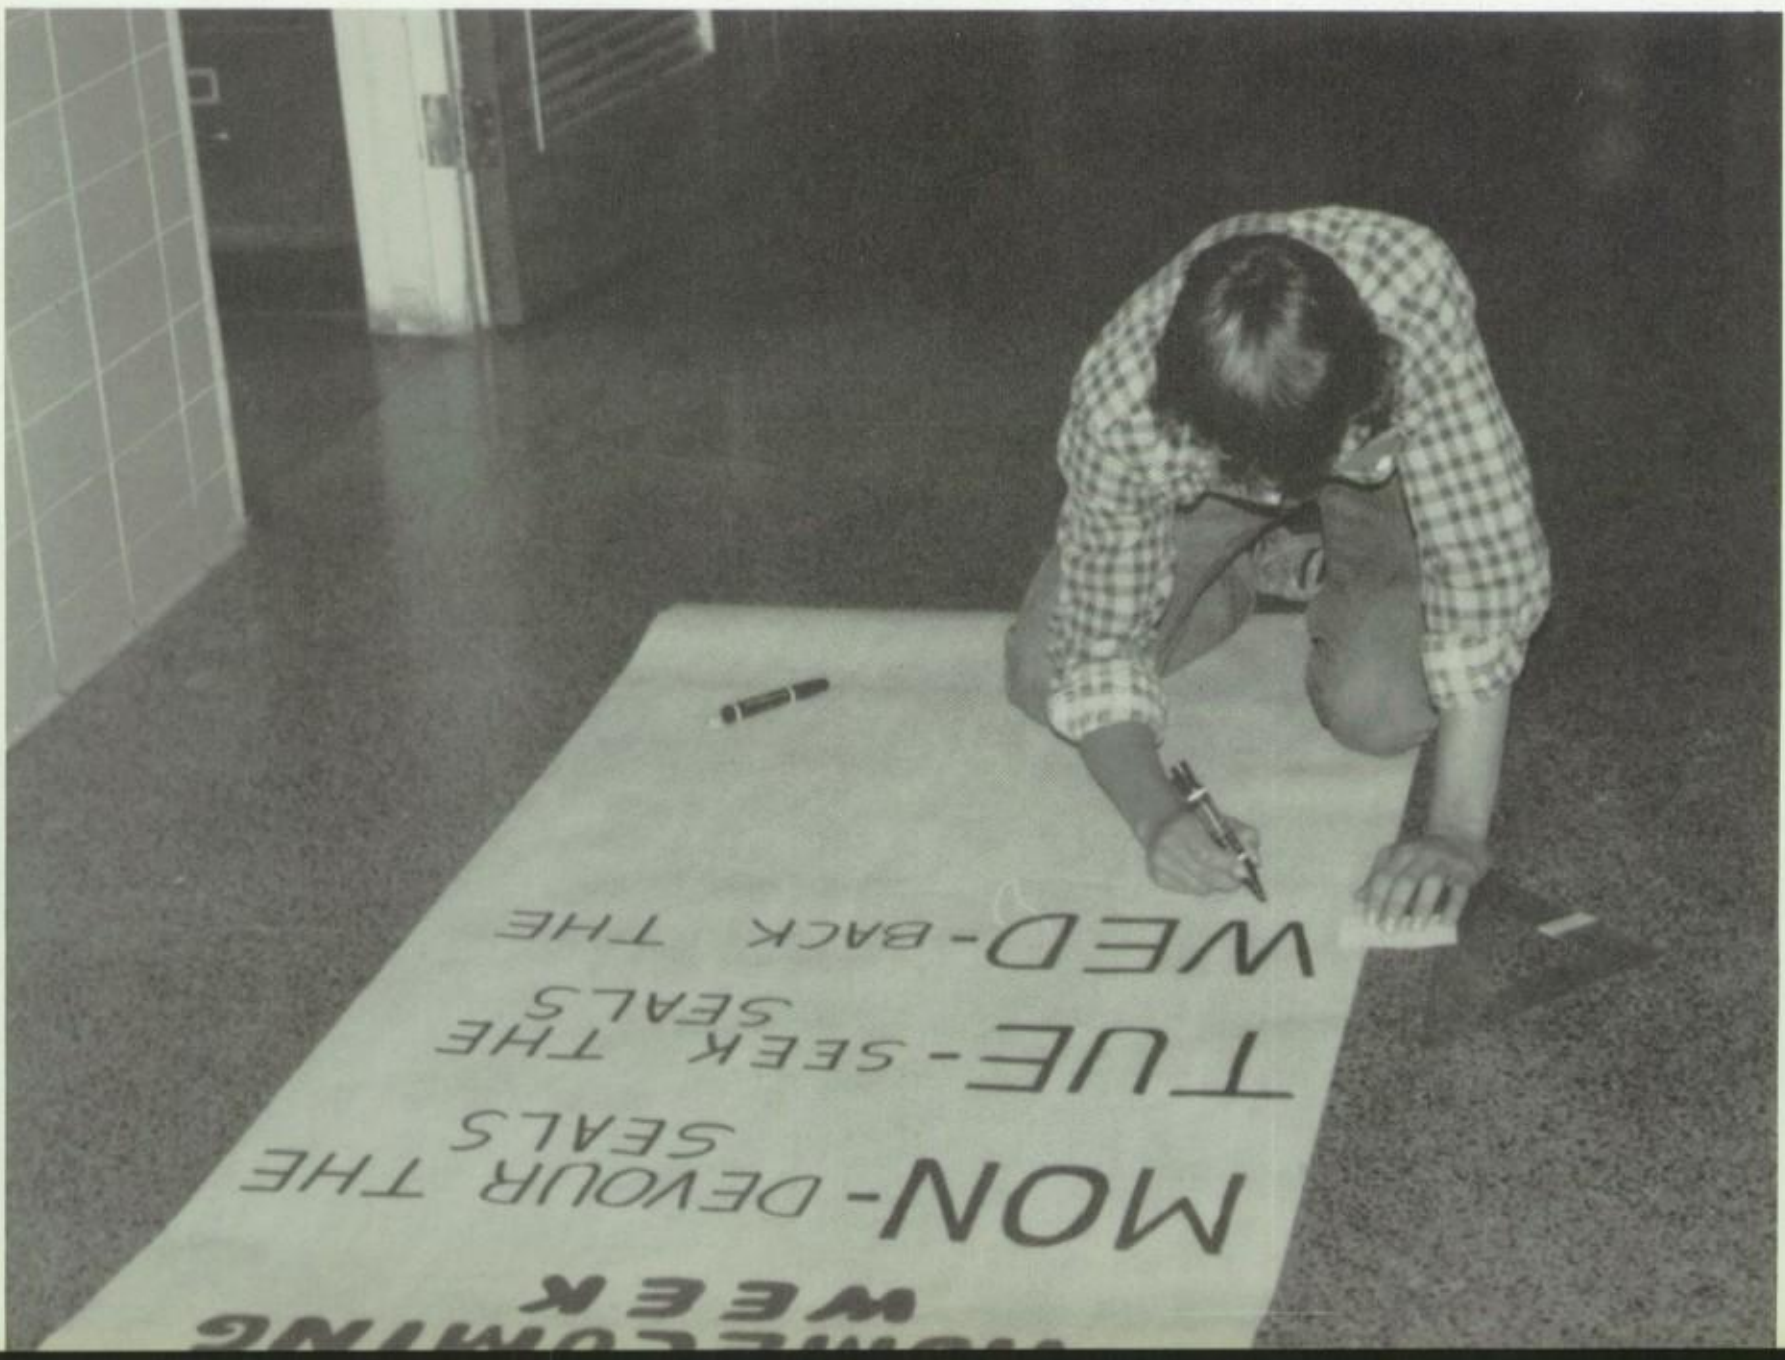 HOMECOMING
WEEK
MON-DEVOUR THE
SEALS
TUE-SEEK THE
SEALS
WED-BACK THE